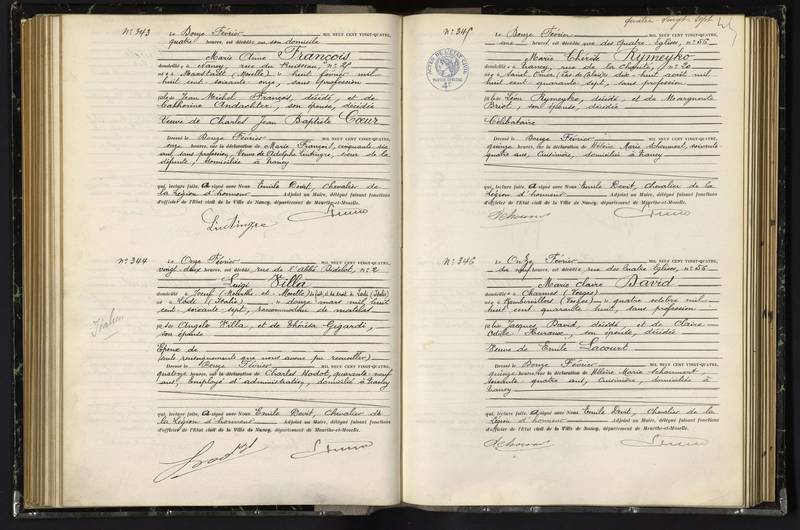 N° 343
Le Douze Février MIL NEUF CENT VINGT-QUATRE,
quatre heures, est décédée en son domicile
Marie Anne François
domiciliée à Nancy, rue du Ruisseau, n° 25
née à Maxstadt (Moselle) le huit février mil
huit cent soixante onze, sans profession
fille de Jean Michel François, décédé, et de
Catherine Andachter, son épouse, décédée
Veuve de Charles Jean Baptiste Cœur
Dressé le Douze Février MIL NEUF CENT VINGT-QUATRE,
onze heures, sur la déclaration de Marie François, cinquante six
ans, sans profession, Veuve de Adolphe Lintingre, sœur de la
défunte, domiciliée à Nancy
qui, lecture faite, a signé avec Nous Emile Devit, Chevalier de
la Légion d'honneur Adjoint au Maire, délégué faisant fonctions
d'officier de l'Etat civil de la Ville de Nancy, département de Meurthe-et-Moselle.
Lintingre
N° 344
Italien
Le Onze Février MIL NEUF CENT VINGT-QUATRE,
vingt deux heures, est décédé rue de l'abbé Didelot, n° 2
Luigi Villa
domicilié à Joeuf (Meurthe et Moselle)
né à Lodi (Italie) le douze mars mil huit
cent soixante sept, raccommodeur de matelas
fils de Angelo Villa, et de Thérésa Gizardi,
son épouse
Epoux de
(seuls renseignements que nous avons pu recueillir)
Dressé le Douze Février MIL NEUF CENT VINGT-QUATRE,
quatorze heures, sur la déclaration de Charles Hodol, quarante neuf
ans, Employé d'administration, domicilié à Nancy
qui, lecture faite, a signé avec Nous Emile Devit, Chevalier de
la Légion d'honneur Adjoint au Maire, délégué faisant fonctions
d'officier de l'Etat civil de la Ville de Nancy, département de Meurthe-et-Moselle.
quatre-vingt-sept
N° 345
Le Douze Février MIL NEUF CENT VINGT-QUATRE,
une heure, est décédée rue des Quatre Eglises, n° 56
Marie Thérèse Rymeyko
domiciliée à Nancy, rue de la Charité, n° 20
née à Saint Omer (Pas de Calais) le dix huit août mil
huit cent quarante sept, sans profession
fille de Léon Rymeyko, décédé, et de Marguerite
Briot, son épouse, décédée
Célibataire
Dressé le Douze Février MIL NEUF CENT VINGT-QUATRE,
quinze heures, sur la déclaration de Hélène Marie Schoumert, soixante
quatre ans, Cuisinière, domiciliée à Nancy
qui, lecture faite, a signé avec Nous Emile Devit, Chevalier de la
Légion d'honneur Adjoint au Maire, délégué faisant fonctions
d'officier de l'Etat civil de la Ville de Nancy, département de Meurthe-et-Moselle.
N° 346
Le Onze Février MIL NEUF CENT VINGT-QUATRE,
dix neuf heures, est décédée, rue des Quatre Eglises, n° 56
Marie Claire David
domiciliée à Charmes (Vosges)
née à Rambervillers (Vosges) le quatre octobre mil
huit cent quarante huit, sans profession
fille de Jacques David, décédé, et de Claire
Odile Huraux, son épouse, décédée
Veuve de Emile Lacourt
Dressé le Douze Février MIL NEUF CENT VINGT-QUATRE,
quinze heures, sur la déclaration de Hélène Marie Schoumert,
soixante quatre ans, Cuisinière, domiciliée à
Nancy
qui, lecture faite, a signé avec Nous Emile Devit, Chevalier de la
Légion d'honneur Adjoint au Maire, délégué faisant fonctions
d'officier de l'Etat civil de la Ville de Nancy, département de Meurthe-et-Moselle.